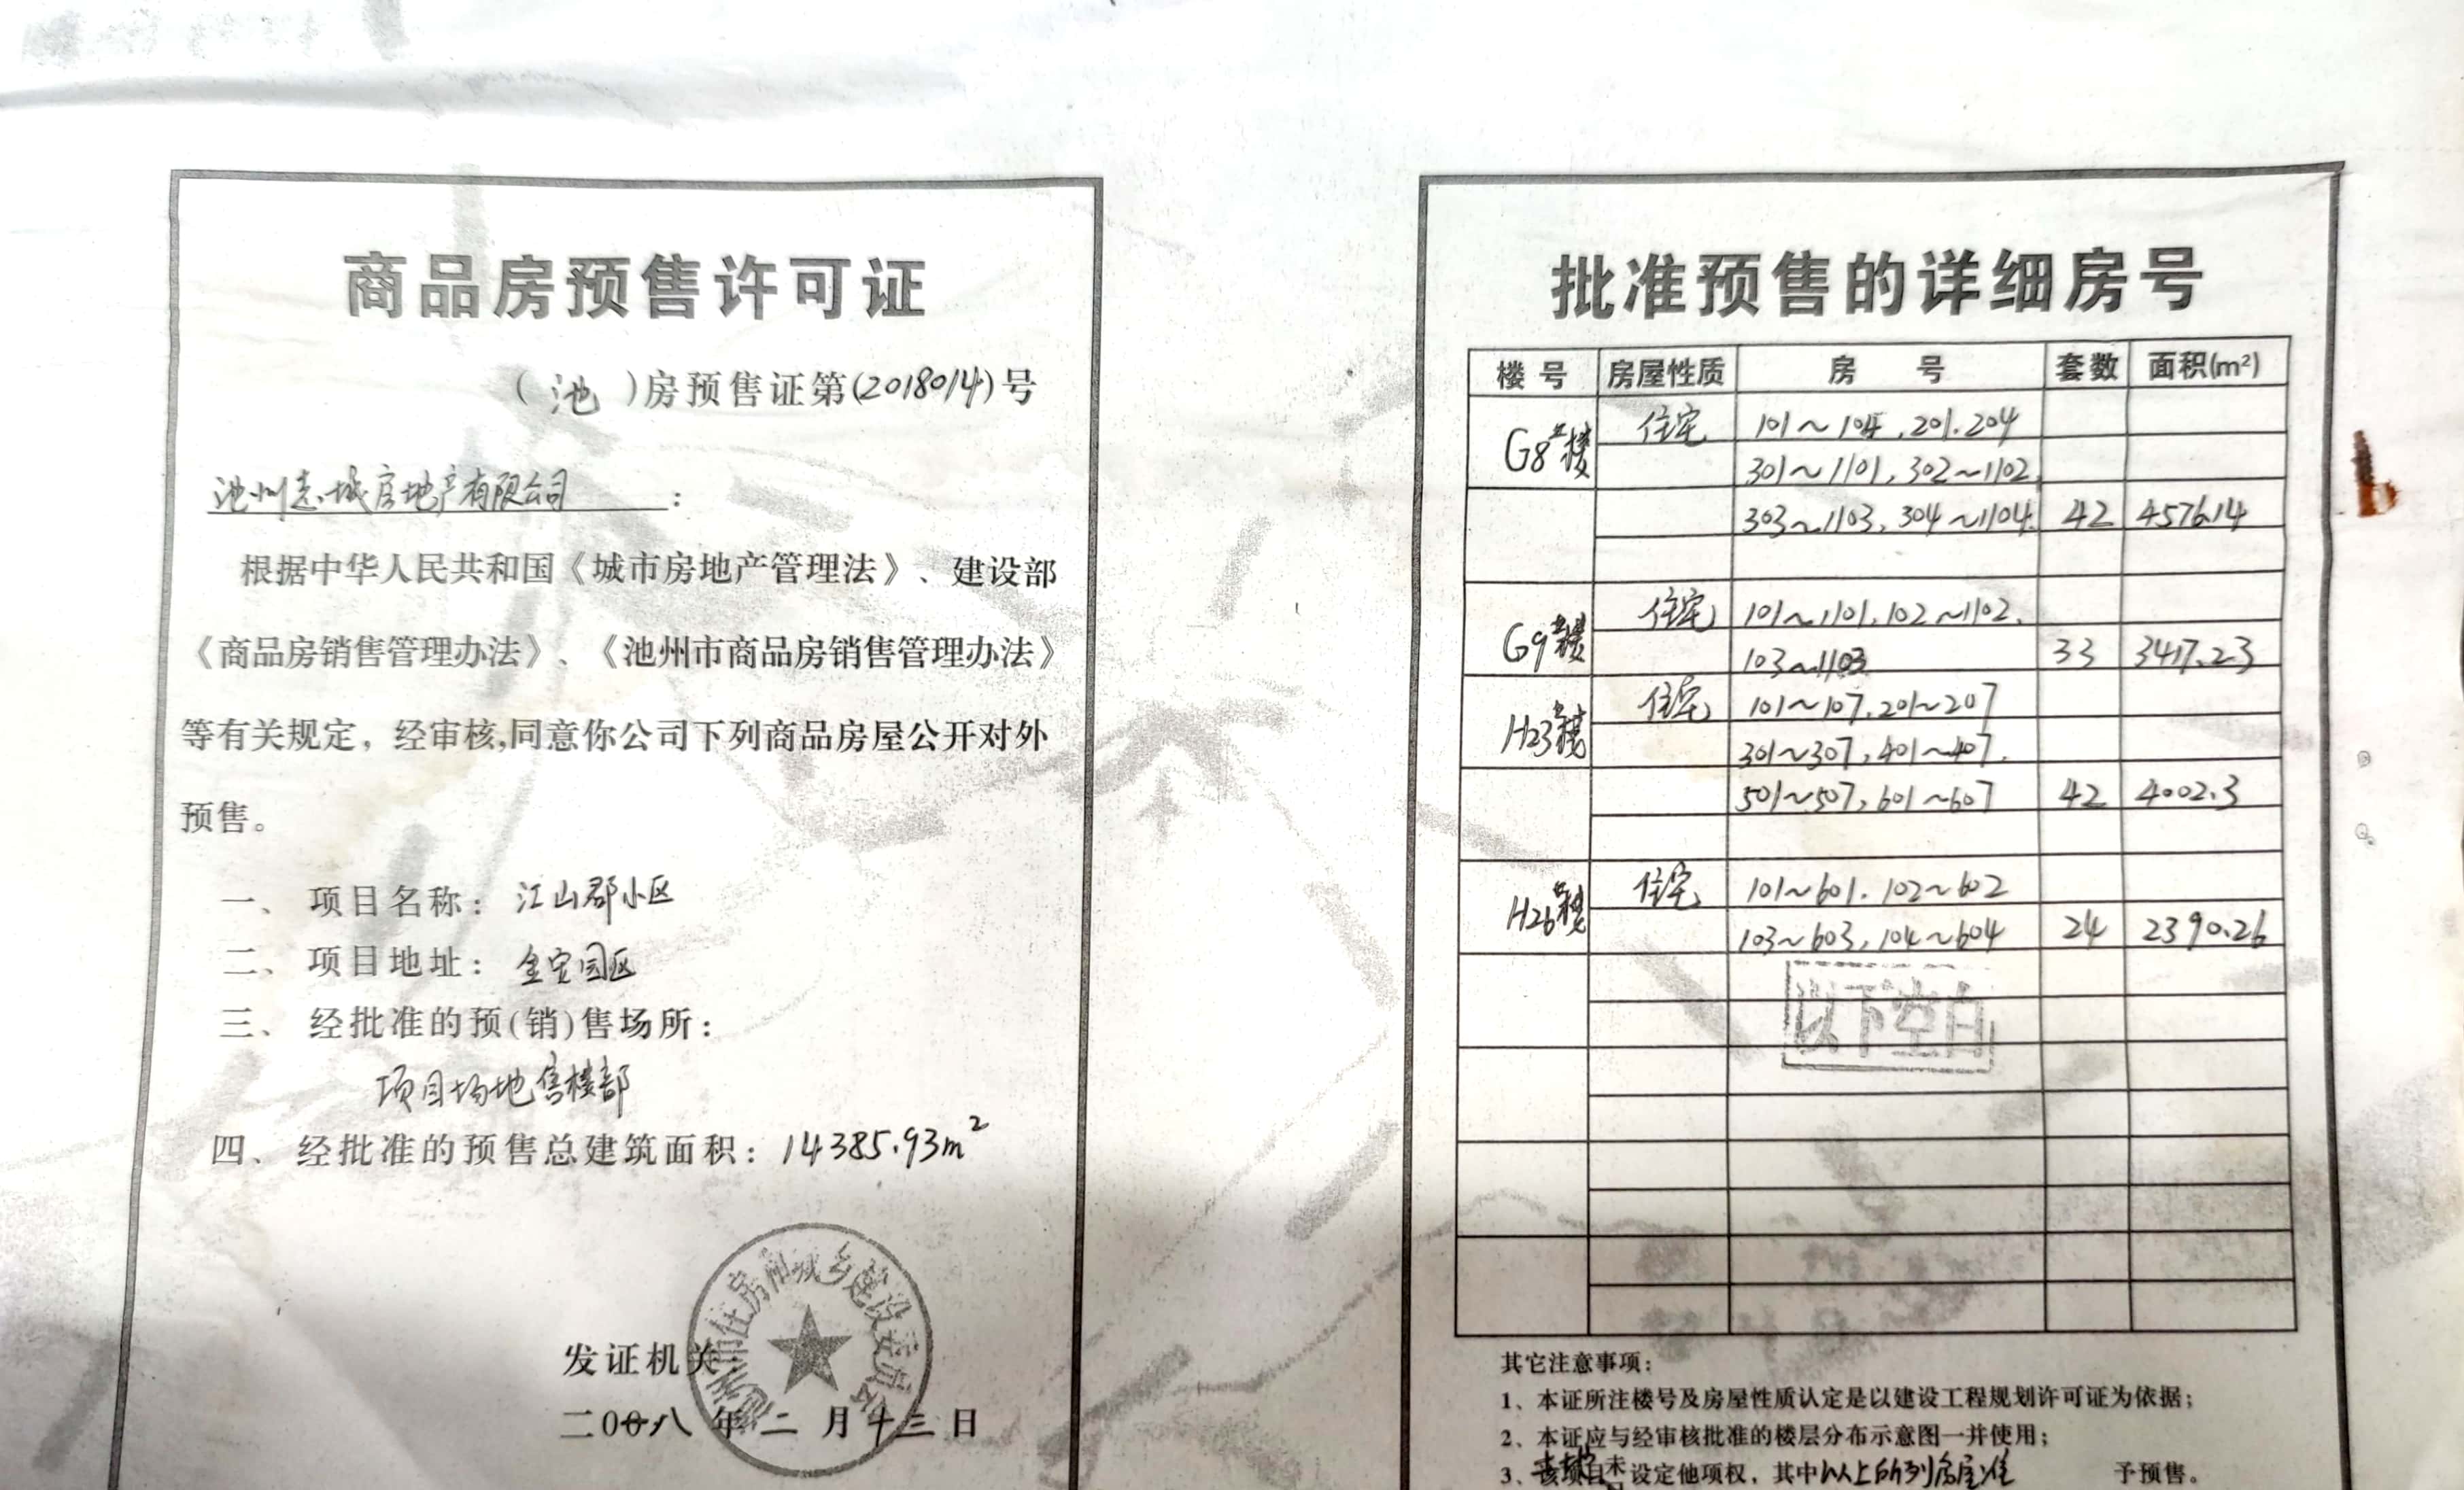 商品房预售许可证
(池)房预售证第(2018014)号
池州志城房地产有限公司:
根据中华人民共和国《城市房地产管理法》、建设部
《商品房销售管理办法》、《池州市商品房销售管理办法》
等有关规定，经审核,同意你公司下列商品房屋公开对外
预售。
一、项目名称: 江山郡小区
二、项目地址: 金安园区
三、经批准的预(销)售场所:
项目场地售楼部
四、经批准的预售总建筑面积: 14385.93m²
池州市住房和城乡建设委员会
发证机关:
二00八年二月十三日
批准预售的详细房号
楼号 房屋性质 房号 套数 面积(m²)
G8#楼 住宅 101~104,201.204
301~1101,302~1102
303~1103,304~1104. 42 4576.14
G9#楼 住宅 101~1101,102~1102,
103~1103 33 3417.23
H23#楼 住宅 101~107,201~207
301~307,401~407.
501~507,601~607 42 4002.3
H26#楼 住宅 101~601.102~602
103~603,104~604 24 2390.26
以下空白
其它注意事项:
1、本证所注楼号及房屋性质认定是以建设工程规划许可证为依据;
2、本证应与经审核批准的楼层分布示意图一并使用;
3、该项目土地未设定他项权，其中以上所列房屋准予预售。